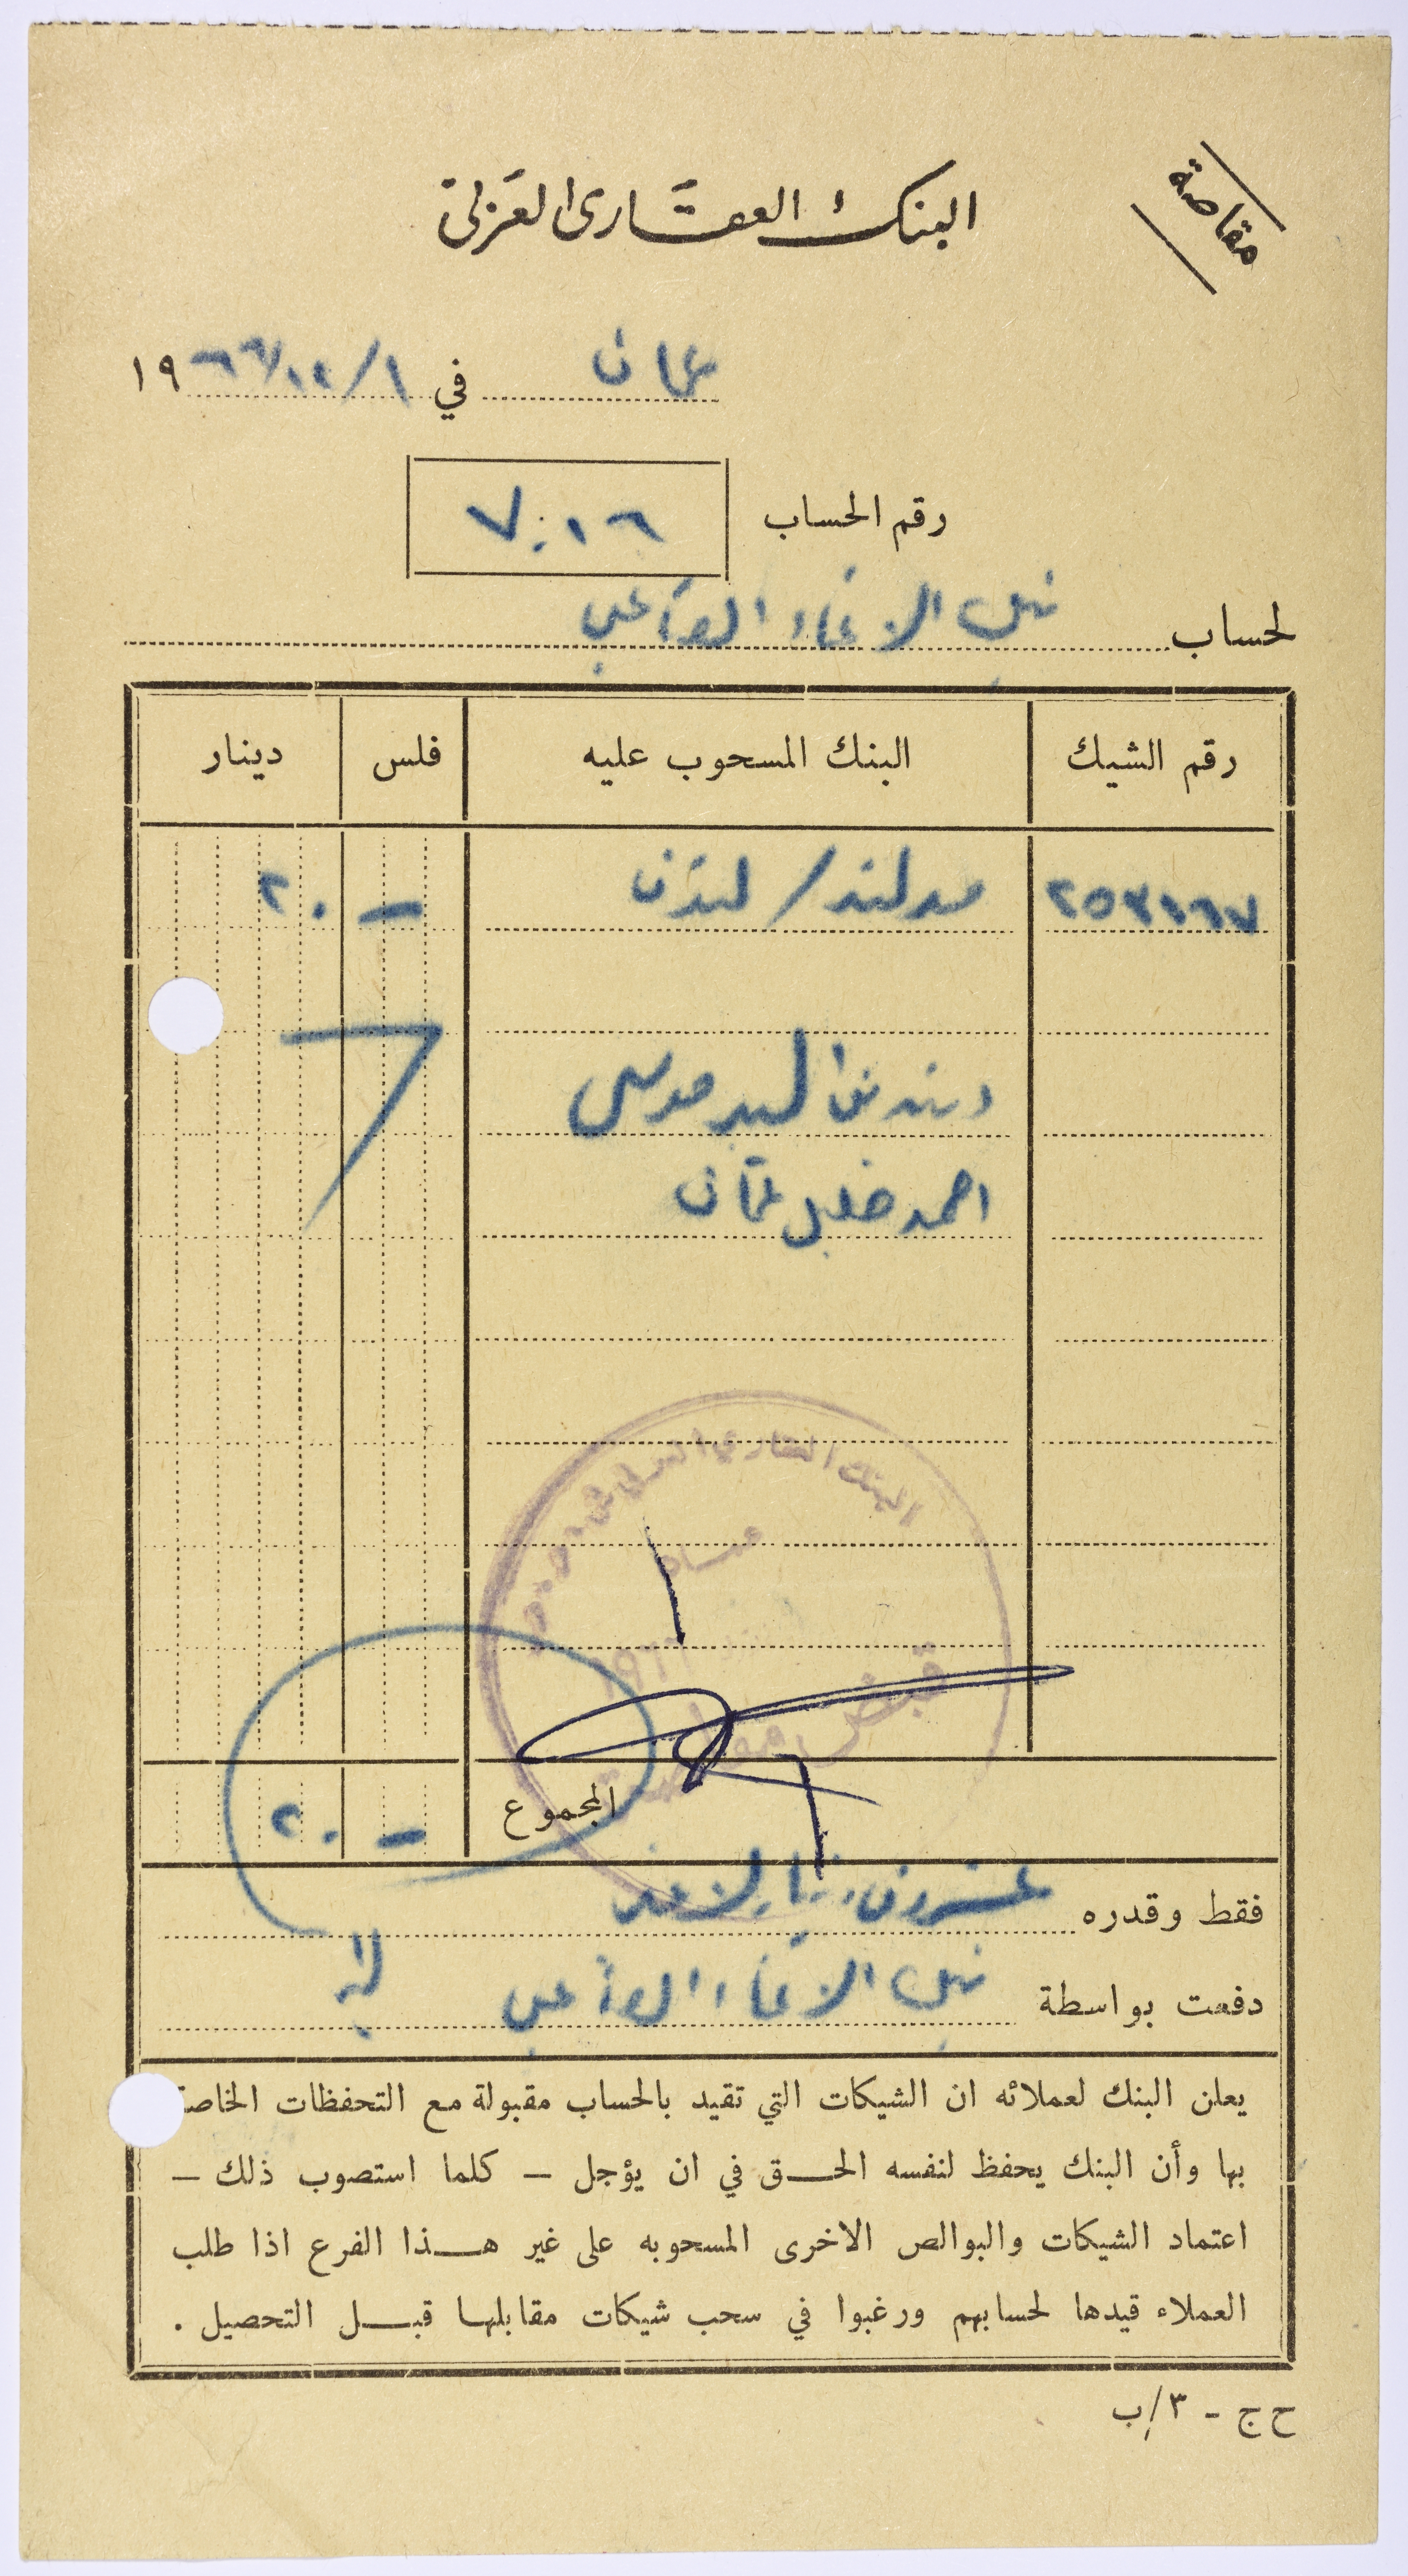 مقاصة
البنك العقاري العربي
عمان في ١/١٢/١٩٦٦
رقم الحساب ٧٠١٦
لحساب الانماء
رقم الشيك البنك المسحوب عليه فلس دينار
مدلند / لندن — ٢٠
السيد موسى
احمد خليل عثمان
البنك العقاري العربي
عمان
قبض
المجموع — ٢٠
فقط وقدره عشرون لا غير
دفعت بواسطة الانماء
يعلن البنك لعملائه ان الشيكات التي تقيد بالحساب مقبولة مع التحفظات الخاصة
بها وأن البنك يحفظ لنفسه الحق في ان يؤجل – كلما استصوب ذلك –
اعتماد الشيكات والبوالص الاخرى المسحوبه على غير هذا الفرع اذا طلب
العملاء قيدها لحسابهم ورغبوا في سحب شيكات مقابلها قبل التحصيل .
ح ج - ٣/ب